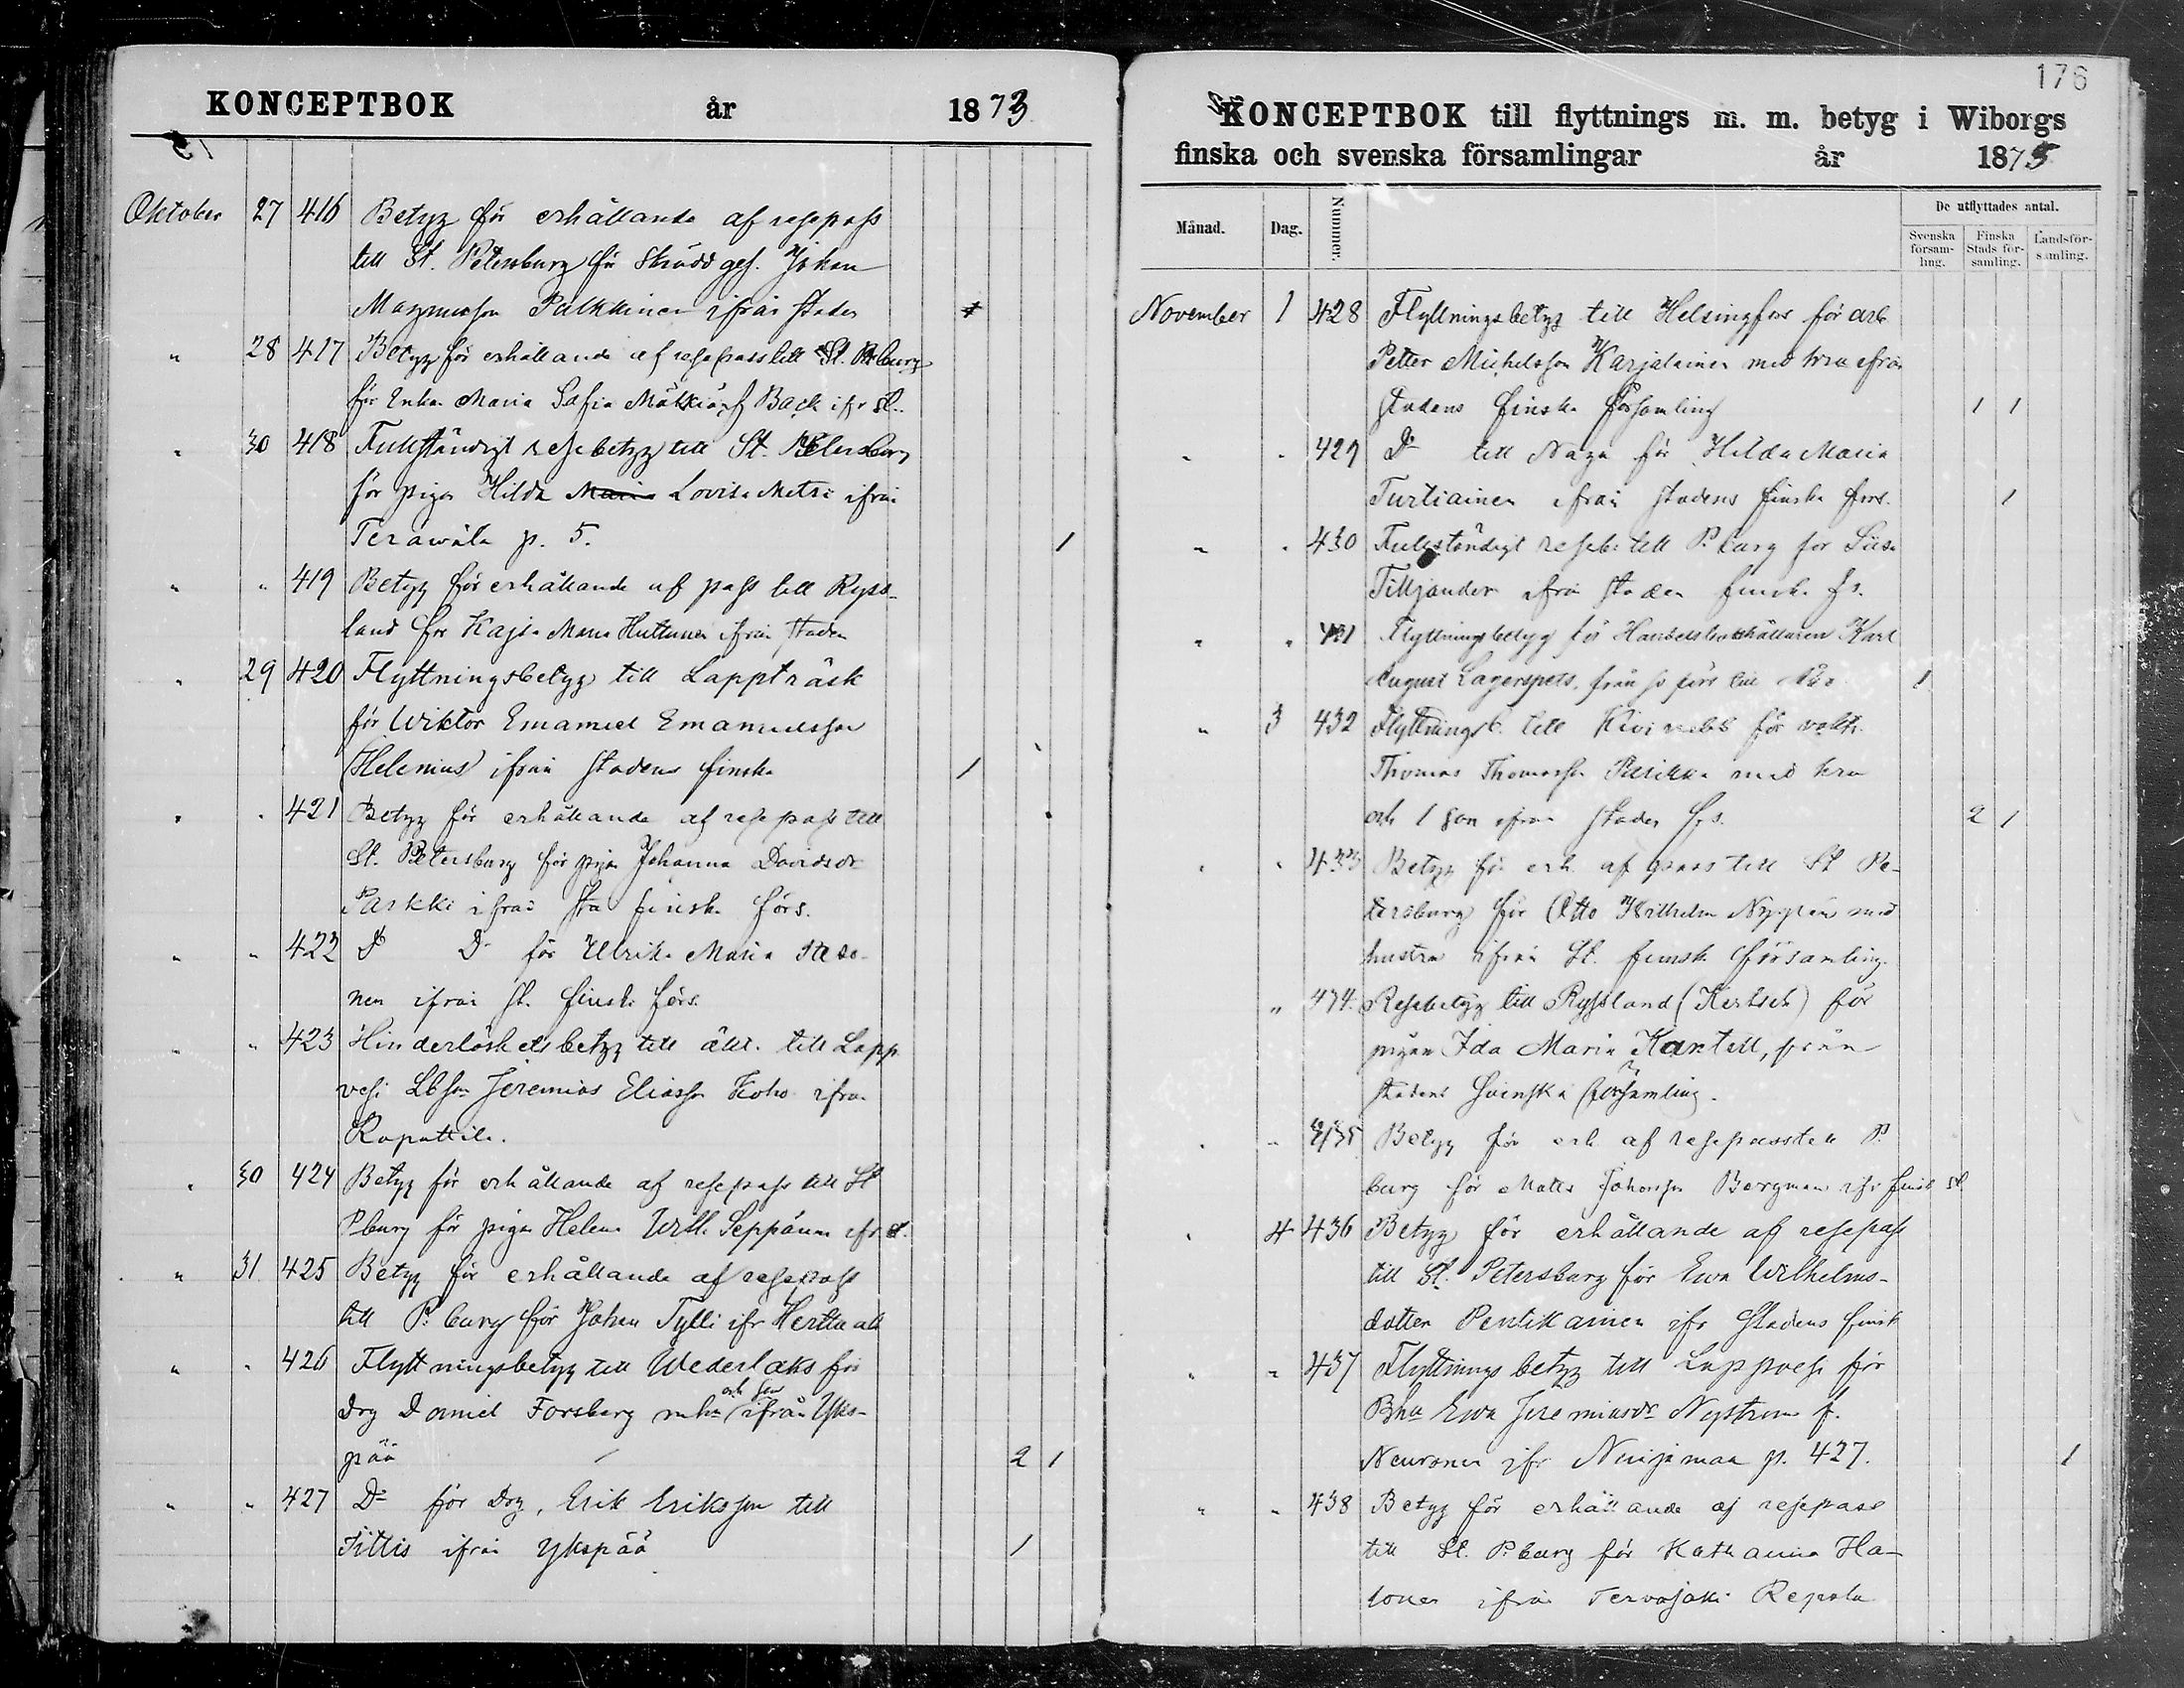 KONCEPTBOK år 1873
Oktober 27 416 Betyg för erhållande af resepass
till St. Petersburg för Skrädd ges. Johan
Magnusson Pulkkinen ifrån staden
" 28 417 Betyg för erhållande af resepass till St. P.burg
för Enkan Maria Sofia f Back ifr st.
" 30 418 Fullständigt resebetyg till St. Petersburg
för pigan Hilda Lovisa Metso ifrån
Terawälä p. 5. 1
" " 419 Betyg för erhållande af pass till Ryss-
land för Kajsa Maria Huttunen ifrån staden
" 29 420 Flyttningsbetyg till Lappträsk
för Wiktor Emanuel Emanuelsson
Helenius ifrån stadens finska 1
" " 421 Betyg för erhållande af resepass till
St. Petersburg för pigan Johanna Davidsdr
Parkki ifrån sta finska förs.
" " 422 Do Do för Ulrika Maria
nen ifrån st. finska förs.
" " 423 Hinderlöshetsbetyg till äkt. till Lapp
vesi Lbson Jeremias Eliasson Koho ifrån
Rapattila.
" 30 424 Betyg för erhållande af resepass till St
P.burg för pigan Helena Wilh. Seppänen ifr st.
" 31 425 Betyg för erhållande af resepass
till P.burg för Johan Tylli ifr Herttuala
" " 426 Flyttningsbetyg till Wederlaks för
och son
Drg Daniel Forsberg mhu ifrån Yks-
pää 2 1
" " 427 Do för Drg. Erik Eriksson till
Tittis ifrån Ykspää 1
176
KONCEPTBOK till flyttnings m. m. betyg i Wiborgs
finska och svenska församlingar år 1875
Månad. Dag. Nummer. De utflyttades antal.
Svenska försam-ling. Finska Stads för-samling. Landsför-samling.
November 1 428 Flyttningsbetyg till Helsingfors för arb
Petter Michelsson Karjalainen med hru ifrån
stadens finska församling 1 1
" " 429 Do till för Hilda Maria
Turtiainen ifrån stadens finska förs. 1
" " 430 Fullständigt reseb. till P.burg för Liisa
Tilljander ifrån staden finska fs.
" " 431 Flyttningsbetyg för Handelsbokhållaren Karl
August Lagerspets, från sv förs till Åbo 1
" 3 432 Flyttningsb. till Kivinebb för
Thomas Thomasson med hru
och 1 son ifrån staden fs. 2 1
" " 433 Betyg för erh. af pass till St Pe-
tersburg för Otto Wilhelm Nyplén med
hustru ifrån St. finsk församling.
" 434. Resebetyg till Ryssland (Kertsch) för
pigan Ida Maria Kantell, från
stadens Svenska församling.
" " 435 Betyg för erh. af resepass till P.
burg för Matts Johansson Bergman ifr finsk st
" 4 436 Betyg för erhållande af resepass
till St. Petersburg för Ewa Wilhelms-
dotter Pentikainen ifr Stadens finsk
" " 437 Flyttnings betyg till Lappvesi för
Bhu Ewa Jeremiasdr Nyström f.
Neuvonen ifr Nuijamaa p. 427. 1
" " 438 Betyg för erhållande af resepass
till St. P.burg för Katharina Ha-
lonen ifrån Tervajoki Repola